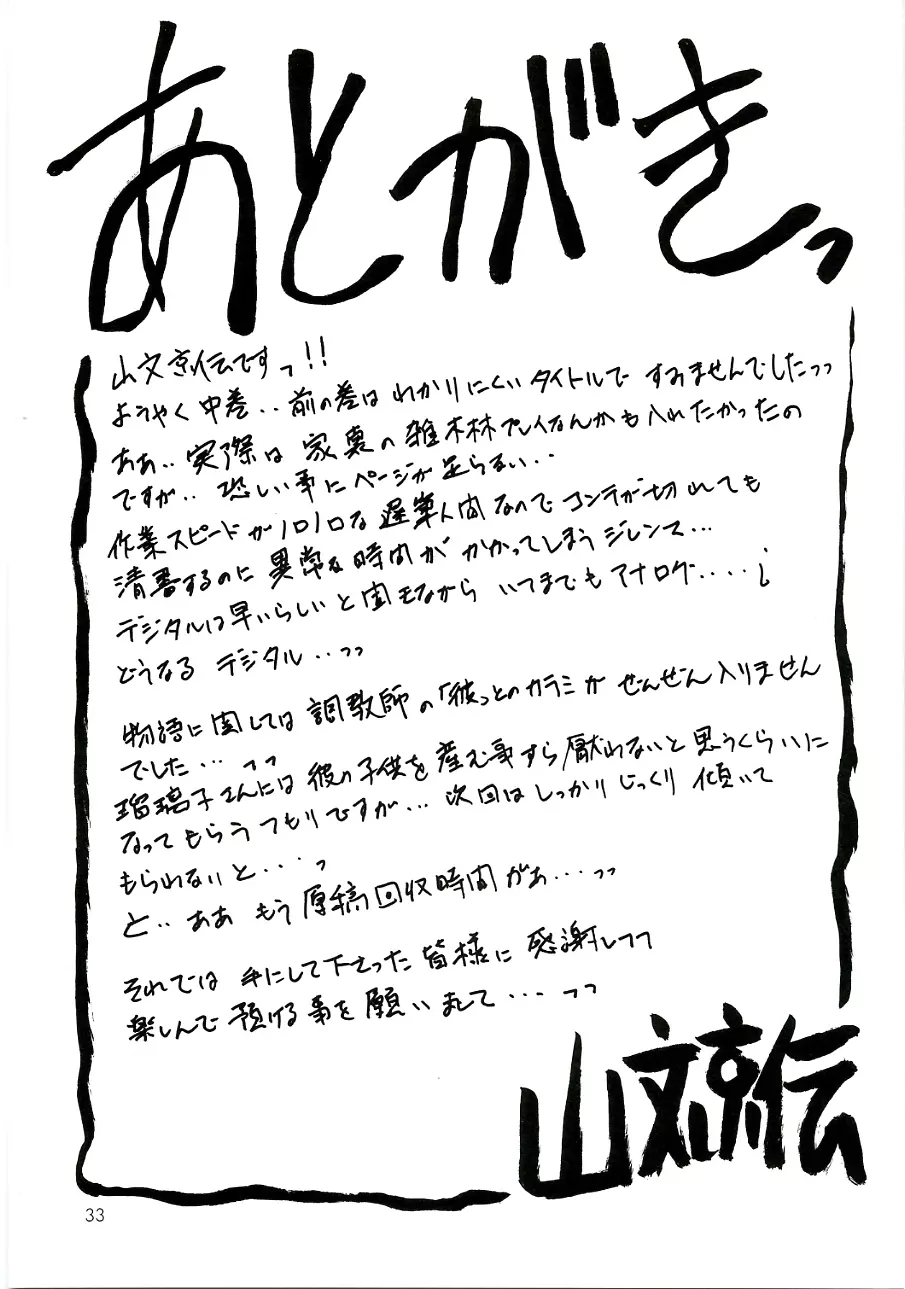 あとがきっ
山文京伝ですっ!!
ようやく中巻‥前の巻はわかりにくいタイトルですみませんでしたっっ
ああ‥実際は家裏の雑木林プレイなんかも入れたかったの
ですが‥恐しい事にページが足らない‥
作業スピードがノロノロな遅筆人間なのでコンテが切れても
清書するのに異常な時間がかかってしまうジレンマ…
デジタルは早いらしいと聞きながらいつまでもアナログ‥‥¡
どうなるデジタル‥っっ
物語に関しては調教師の「彼」とのカラミがぜんぜん入りません
でした…っっ
瑠璃子さんには彼の子供を産む事すら厭わないと思うくらいに
なってもらうつもりですが…次回はしっかりじっくり傾いて
もらわれないと…っ
と‥ああもう原稿回収時間があ…っっ
それでは手にして下さった皆様に感謝しっっ
楽しんで預ける事を願いまして…っっ
山文京伝
33